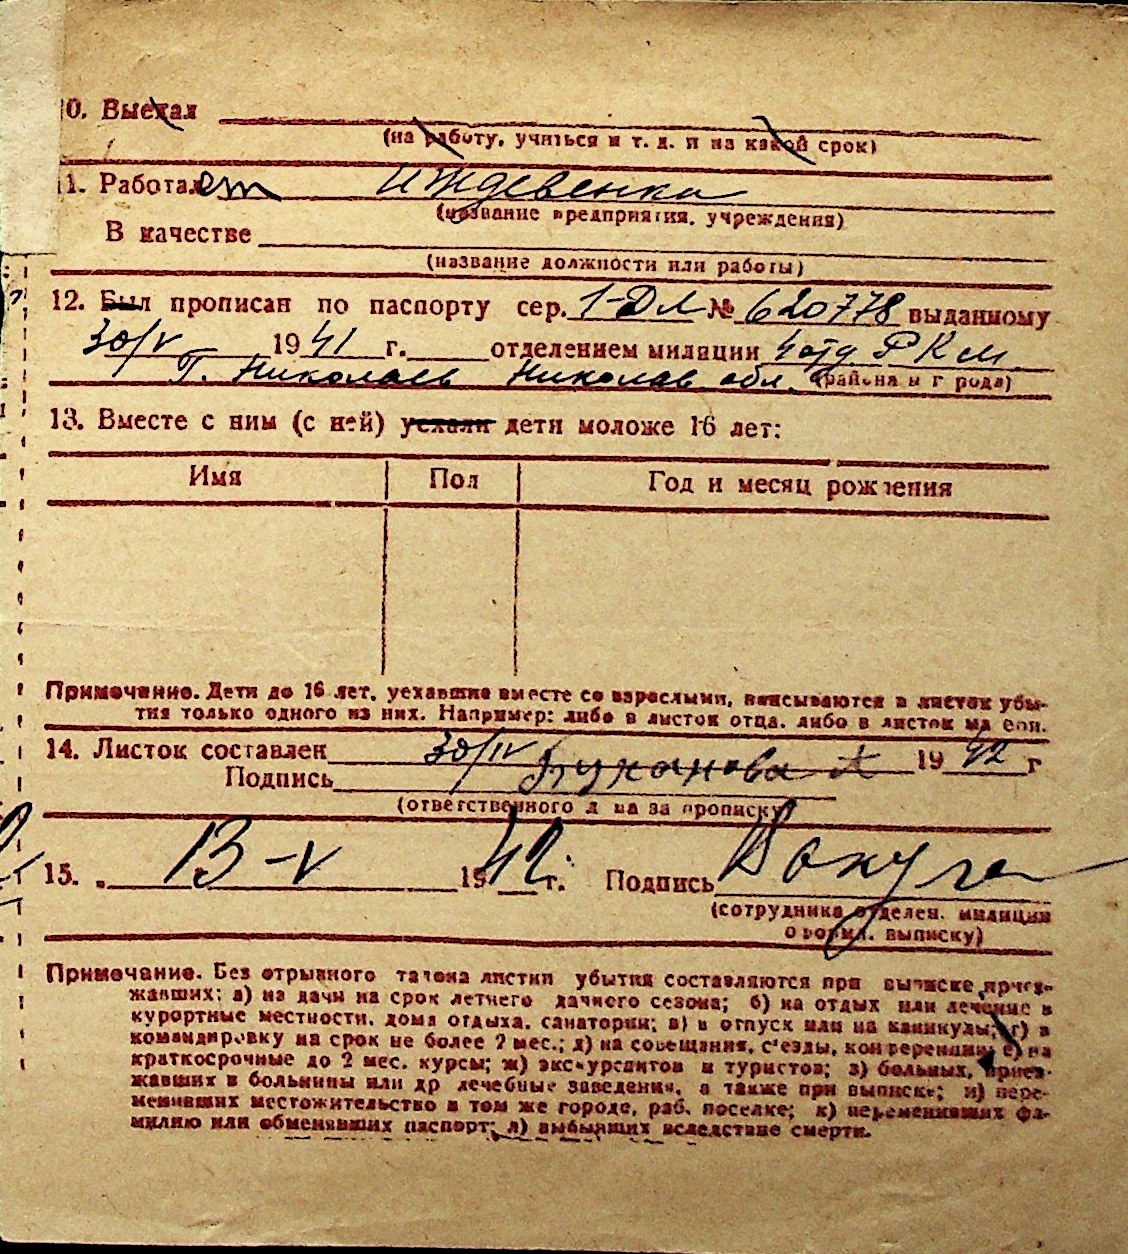 0. Выехал
(на работу, учиться и т. д. и на какой срок)
1. Работает иждевенка
(название предприятия, учреждения)
В качестве
(название должности или работы)
12. Был прописан по паспорту сер. 1-ДЛ № 620778 выданному
30/V 1941 г. отделением милиции 4 отд РКМ
г. Николаев Николаев обл. (района и города)
13. Вместе с ним (с ней) уехали дети моложе 16 лет:
Имя Пол Год и месяц рождения
Примечание. Дети до 16 лет, уехавшие вместе со взрослыми, вписываются в листок убы-
тия только одного из них. Например: либо в листок отца, либо в листок матери.
14. Листок составлен 30/IV 1942 г
Подпись
(ответственного лица за прописку)
15. 13-V 1942 г. Подпись
(сотрудника отделен. милиции
оформл. выписку)
Примечание. Без отрывного талона листки убытия составляются при выписке приез-
жавших: а) на дачи на срок летнего дачного сезона; б) на отдых или лечение в
курортные местности, дома отдыха, санатории; в) в отпуск или на каникулы; г) в
командировку на срок не более 2 мес.; д) на совещания, съезды, конференции; е) на
краткосрочные до 2 мес. курсы; ж) экскурсантов и туристов; з) больных, приез-
жавших в больницы или др лечебные заведения, а также при выписке; и) пере-
менивших местожительство в том же городе, раб. поселке; к) переменивших фа-
милию или обменявших паспорт; л) выбывших вследствие смерти.